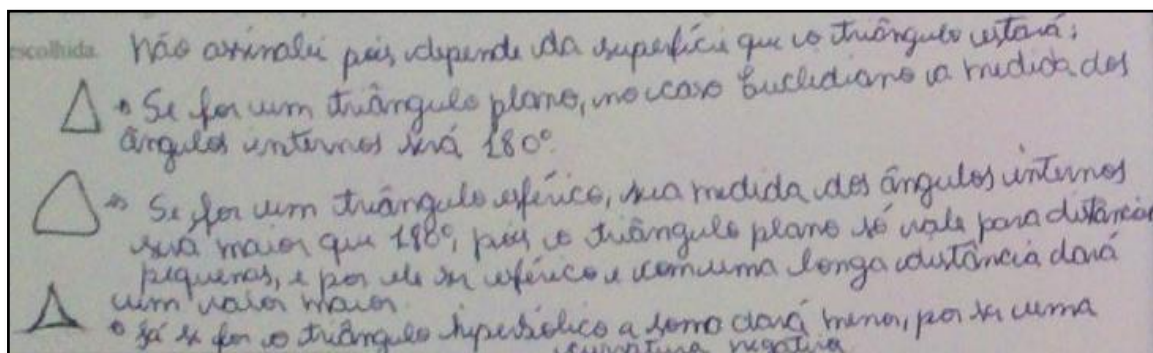 escolhida. Não assinalei pois, depende da superfície que o triângulo estará;
• Se for um triângulo plano, no caso Euclidiano a medida dos
ângulos internos será 180°.
Se for um triângulo esférico, sua medida dos ângulos internos
será maior que 180°, pois o triângulo plano só vale para distâncias
pequenas, e por ele ser esférico e com uma longa distância dará
um valor maior.
• Já se for o triângulo hiperbólico a soma dará menor, por ser uma
curvatura negativa